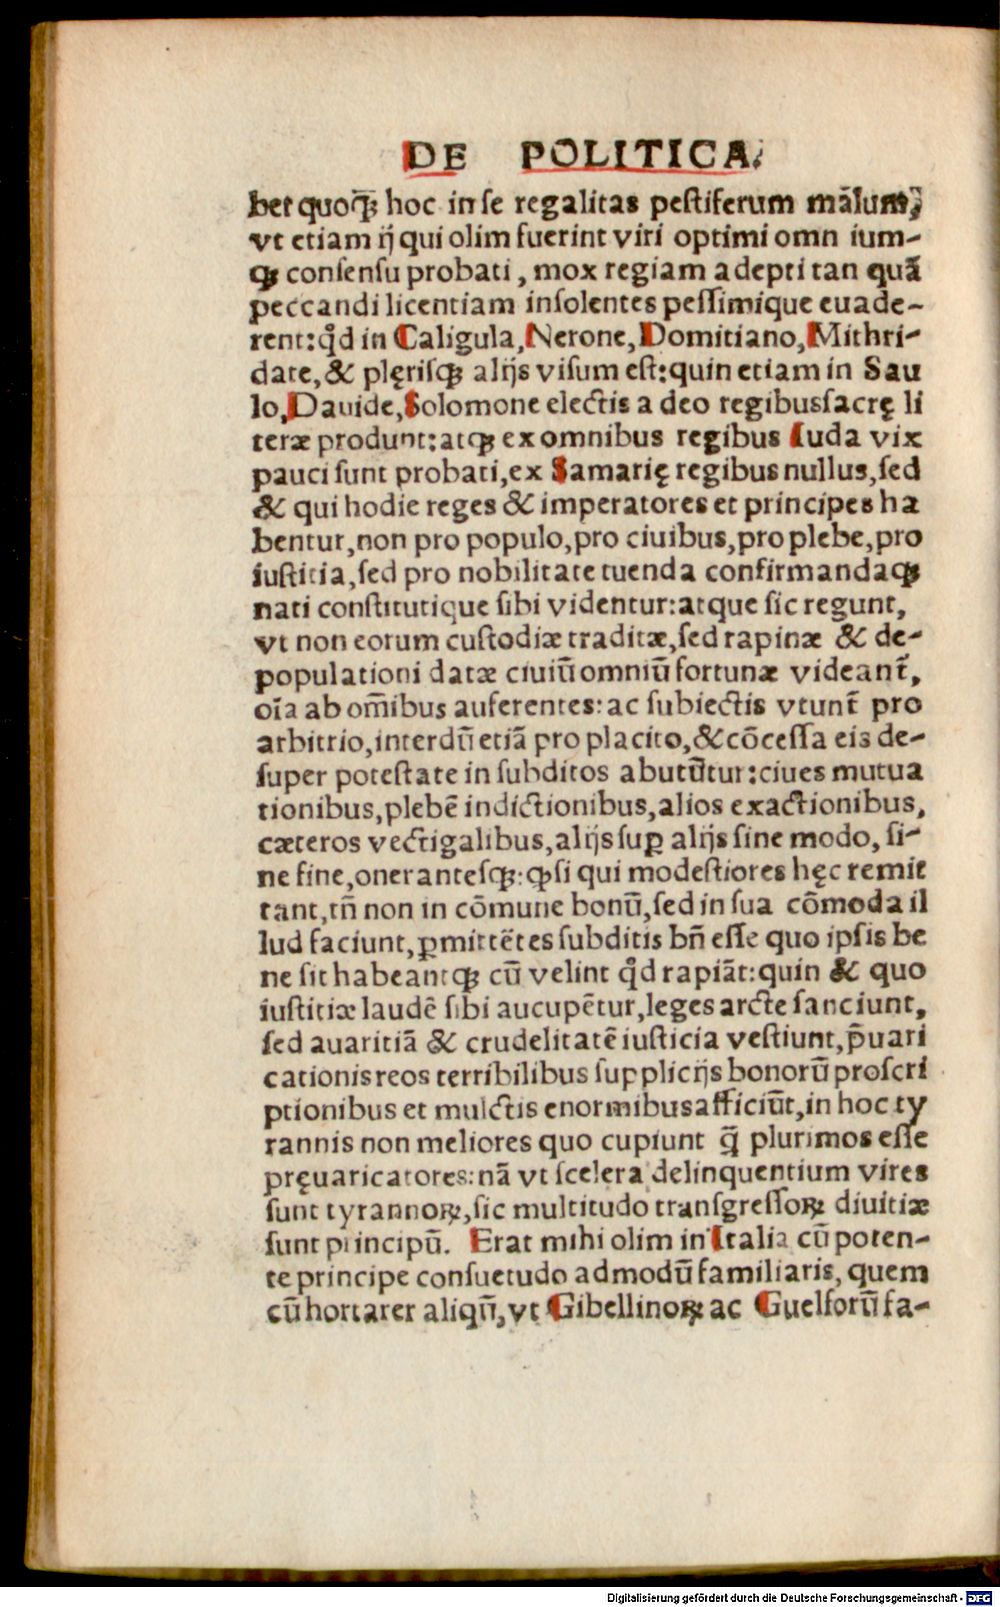 DE POLITICA.
bet quoq̃ꝫ hoc in se regalitas pestiferum mãlum,
vt etiam ij qui olim fuerint viri optimi omn ium-
qꝫ consensu probati, mox regiam adepti tan quã
peccandi licentiam insolentes pessimique euade-
rent: qd̾ in Caligula, Nerone, Domitiano, Mithri-
date, & plęrisqꝫ alijs visum est: quin etiam in Sau
lo, Dauide, Solomone electis a deo regibus sacrę li
teræ produnt: atqꝫ ex omnibus regibus Iuda vix
pauci sunt probati, ex Samarię regibus nullus, sed
& qui hodie reges & imperatores et principes ha
bentur, non pro populo, pro ciuibus, pro plebe, pro
iustitia, sed pro nobilitate tuenda confirmandaqꝫ
nati constitutique sibi videntur: atque sic regunt,
vt non eorum custodiæ traditæ, sed rapinæ & de-
populationi datæ ciuiũ omniũ fortunæ videant̃,
oĩa ab om̃ibus auferentes: ac subiectis vtunt̃ pro
arbitrio, interdũ etiã pro placito, & cõcessa eis de-
super potestate in subditos abutũtur: ciues mutua
tionibus, plebẽ indictionibus, alios exactionibus,
cæteros vectigalibus, alijs suꝑ alijs sine modo, si-
ne fine, onerantesqꝫ: ꝙ si qui modestiores hęc remit
tant, tñ non in cõmune bonũ, sed in sua cõmoda il
lud faciunt, ꝑmittẽtes subditis bñ esse quo ipsis be
ne sit habeantqꝫ cũ velint qd̾ rapiãt: quin & quo
iustitiæ laudẽ sibi aucupẽtur, leges arcte sanciunt,
sed auaritiã & crudelitatẽ iusticia vestiunt, p̃uari
cationis reos terribilibus supplicijs bonorũ proscri
ptionibus et mulctis enormibus afficiũt, in hoc ty
rannis non meliores quo cupiunt q̃ plurimos esse
pręuaricatores: nã vt scelera delinquentium vires
sunt tyrannoꝝ, sic multitudo transgressoꝝ diuitiæ
sunt principũ. Erat mihi olim in Italia cũ poten-
te principe consuetudo admodũ familiaris, quem
cũ hortarer aliqñ, vt Gibellinoꝝ ac Guelforũ fa-
Digitalisierung gefördert durch die Deutsche Forschungsgemeinschaft - DFG